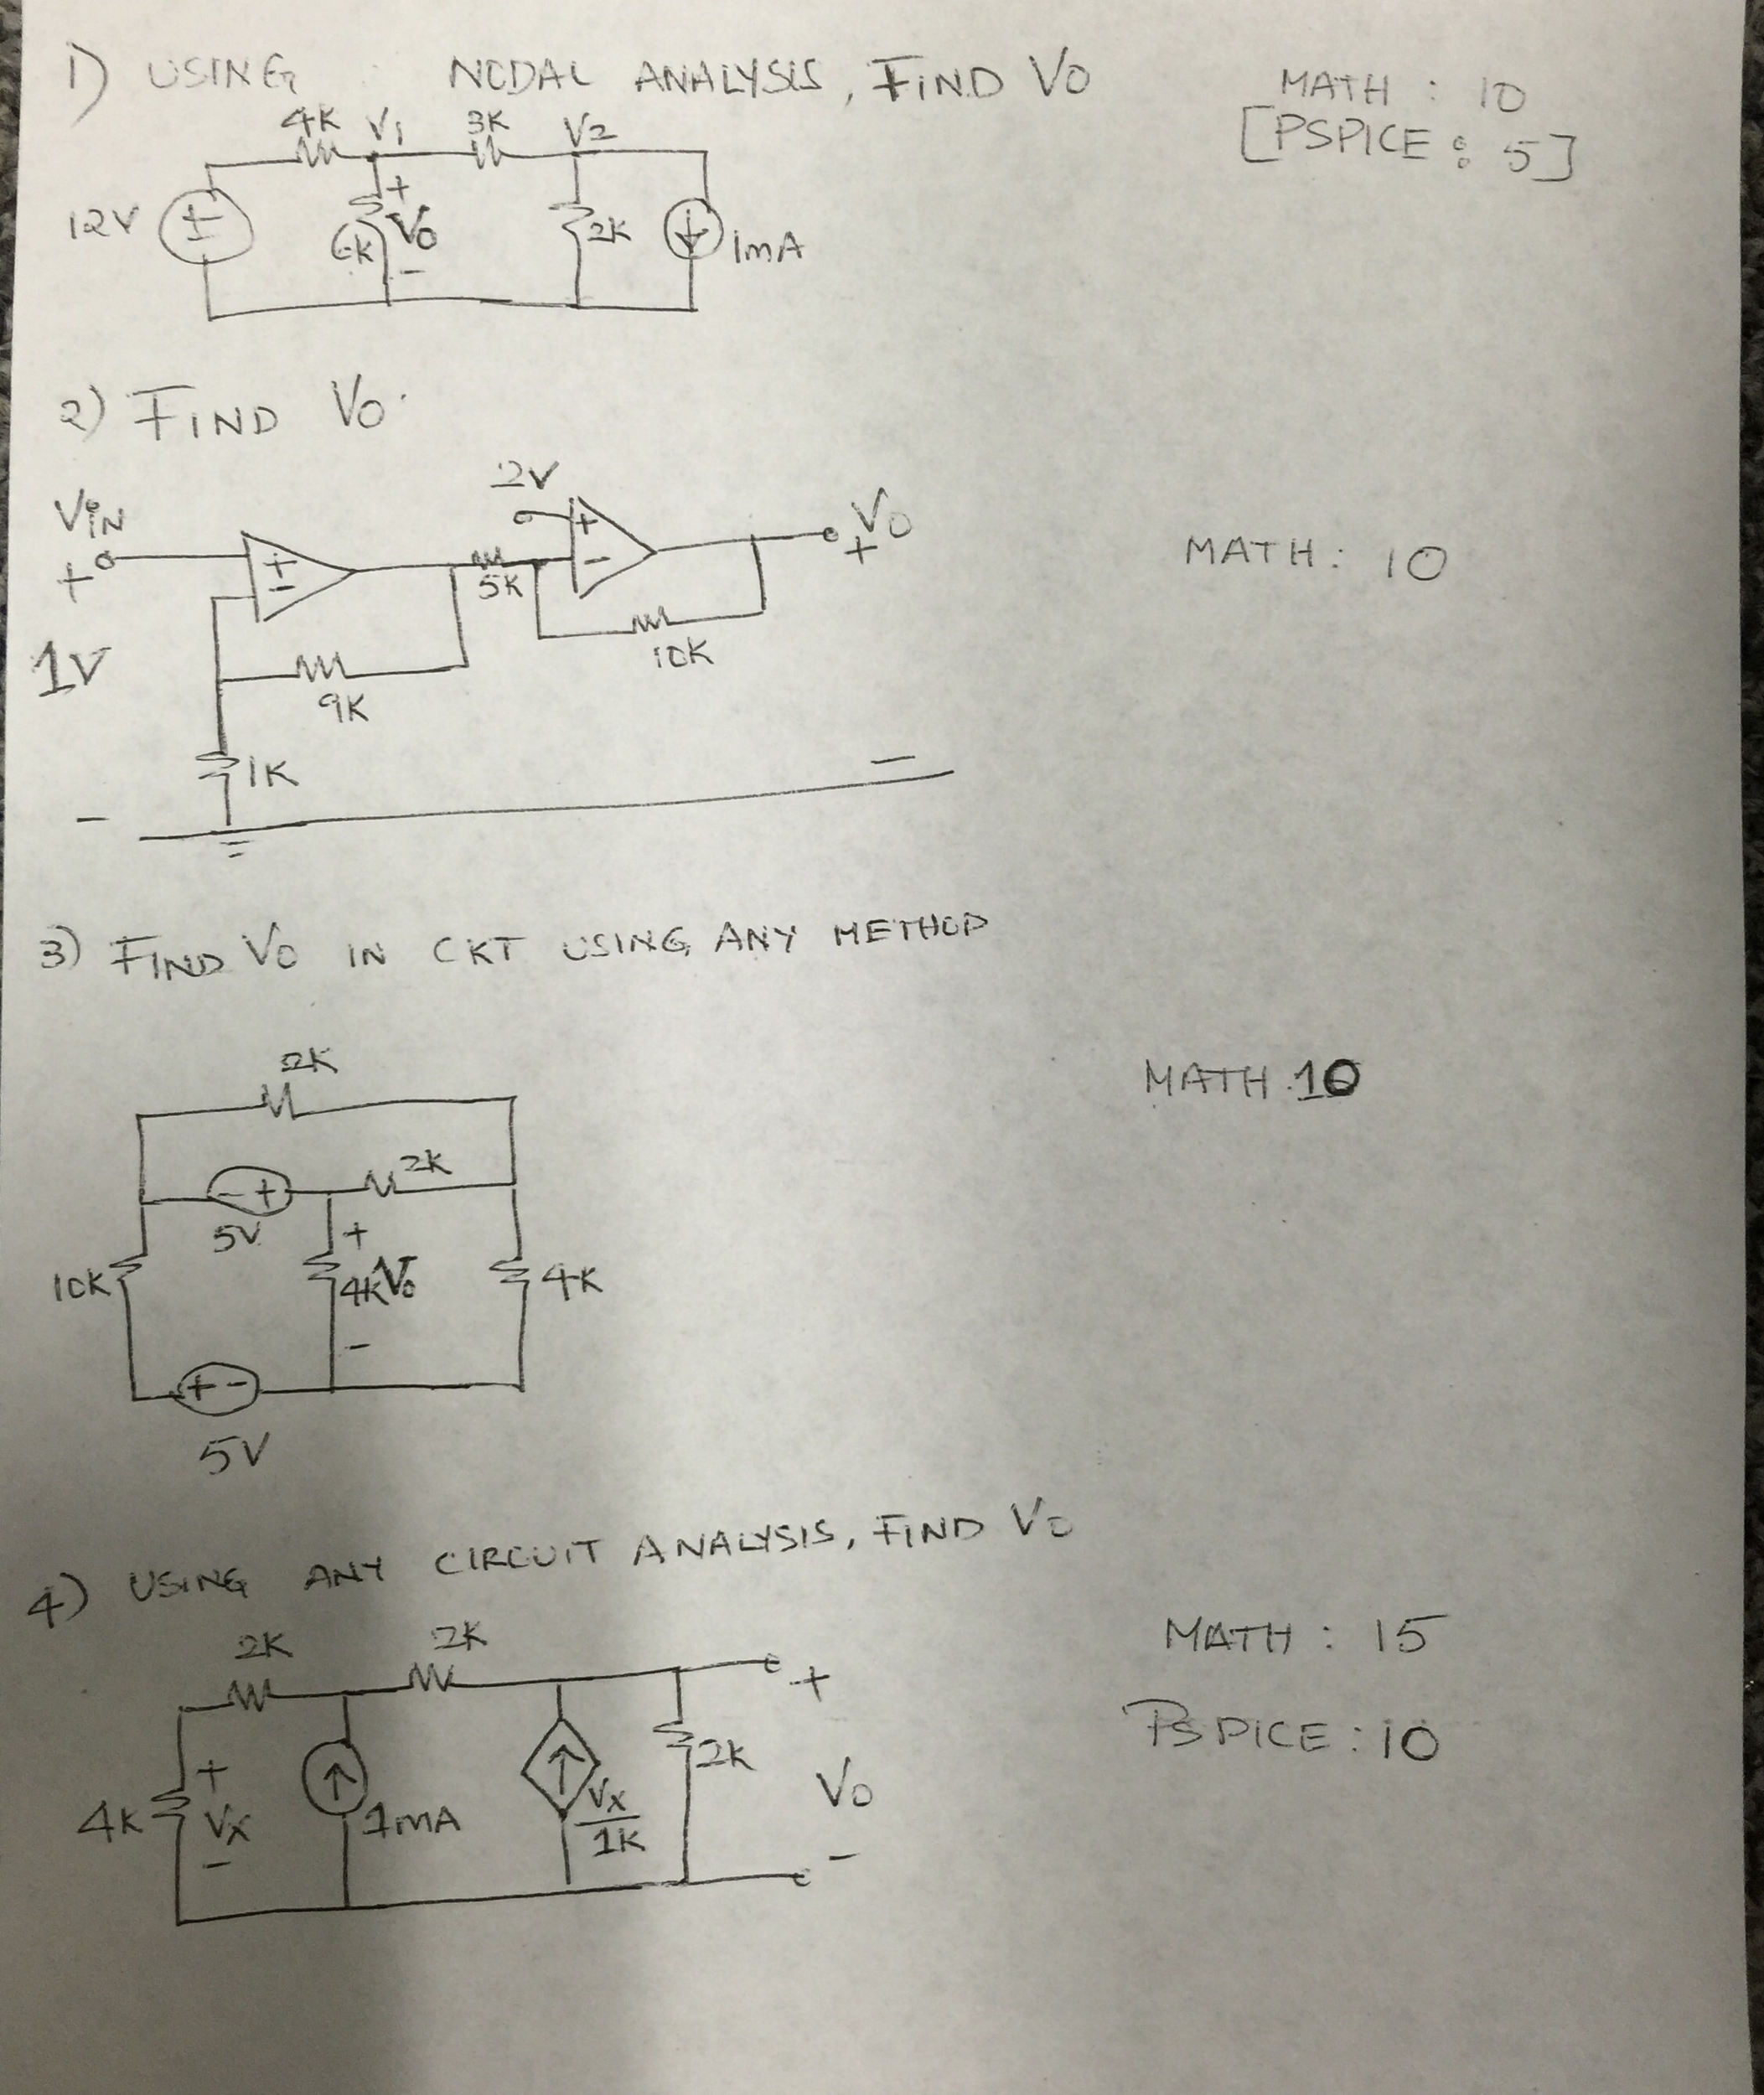 1) USING NODAL ANALYSIS, FIND VO
MATH : 10
[PSPICE : 5]
4K V1 3K V2
12V + - 6K + VO - 2K 1mA
2) FIND VO
2V
VIN + VO
+ + - 5K + - +
1V 10K
9K
1K
- -
MATH : 10
3) FIND VO IN CKT USING ANY METHOD
MATH 10
2K
- + 2K
5V +
10K 4K Vo 4K
-
+ -
5V
4) USING ANY CIRCUIT ANALYSIS, FIND VO
MATH : 15
PSPICE : 10
2K 2K
+ +
4K VX 1mA VX/1K 2K VO
- -